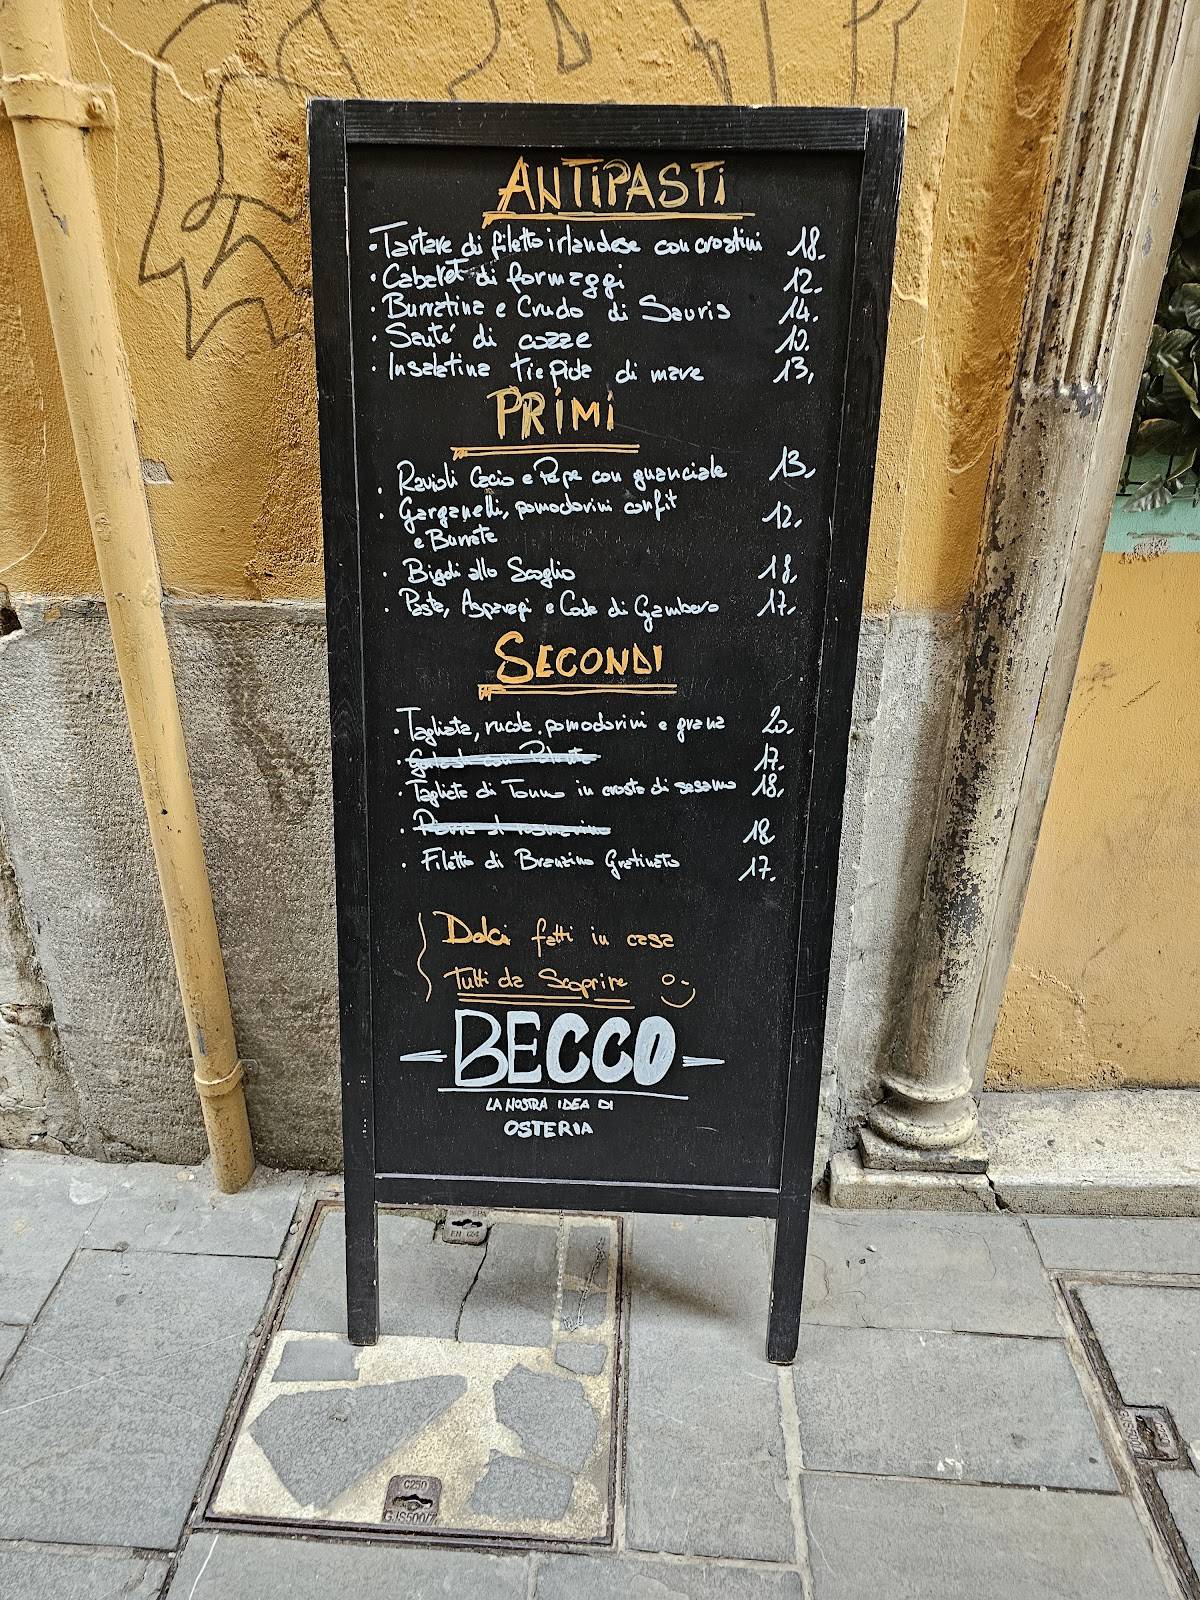 ANTIPASTI
• Tartare di filetto irlandese con crostini 18.
• Cabaret di formaggi 12.
• Burratina e Crudo di Sauris 14.
• Sauté di cozze 10.
• Insalatina tiepida di mare 13,
PRIMI
• Ravioli Cacio e Pepe con guanciale 13,
• Garganelli, pomodorini confit 12.
e Burrata
• Bigoli allo Scoglio 18,
• Pasta, Asparagi e Coda di Gambero 17.
SECONDI
• Tagliata, rucola, pomodorini e grana 20.
• 17.
• Tagliata di Tonno in crosta di sesamo 18,
• 18
• Filetto di Branzino Gratinato 17.
Dolci fatti in casa
Tutti da Scoprire
BECCO
LA NOSTRA IDEA DI
OSTERIA
EN 124
C250
GJS500/7